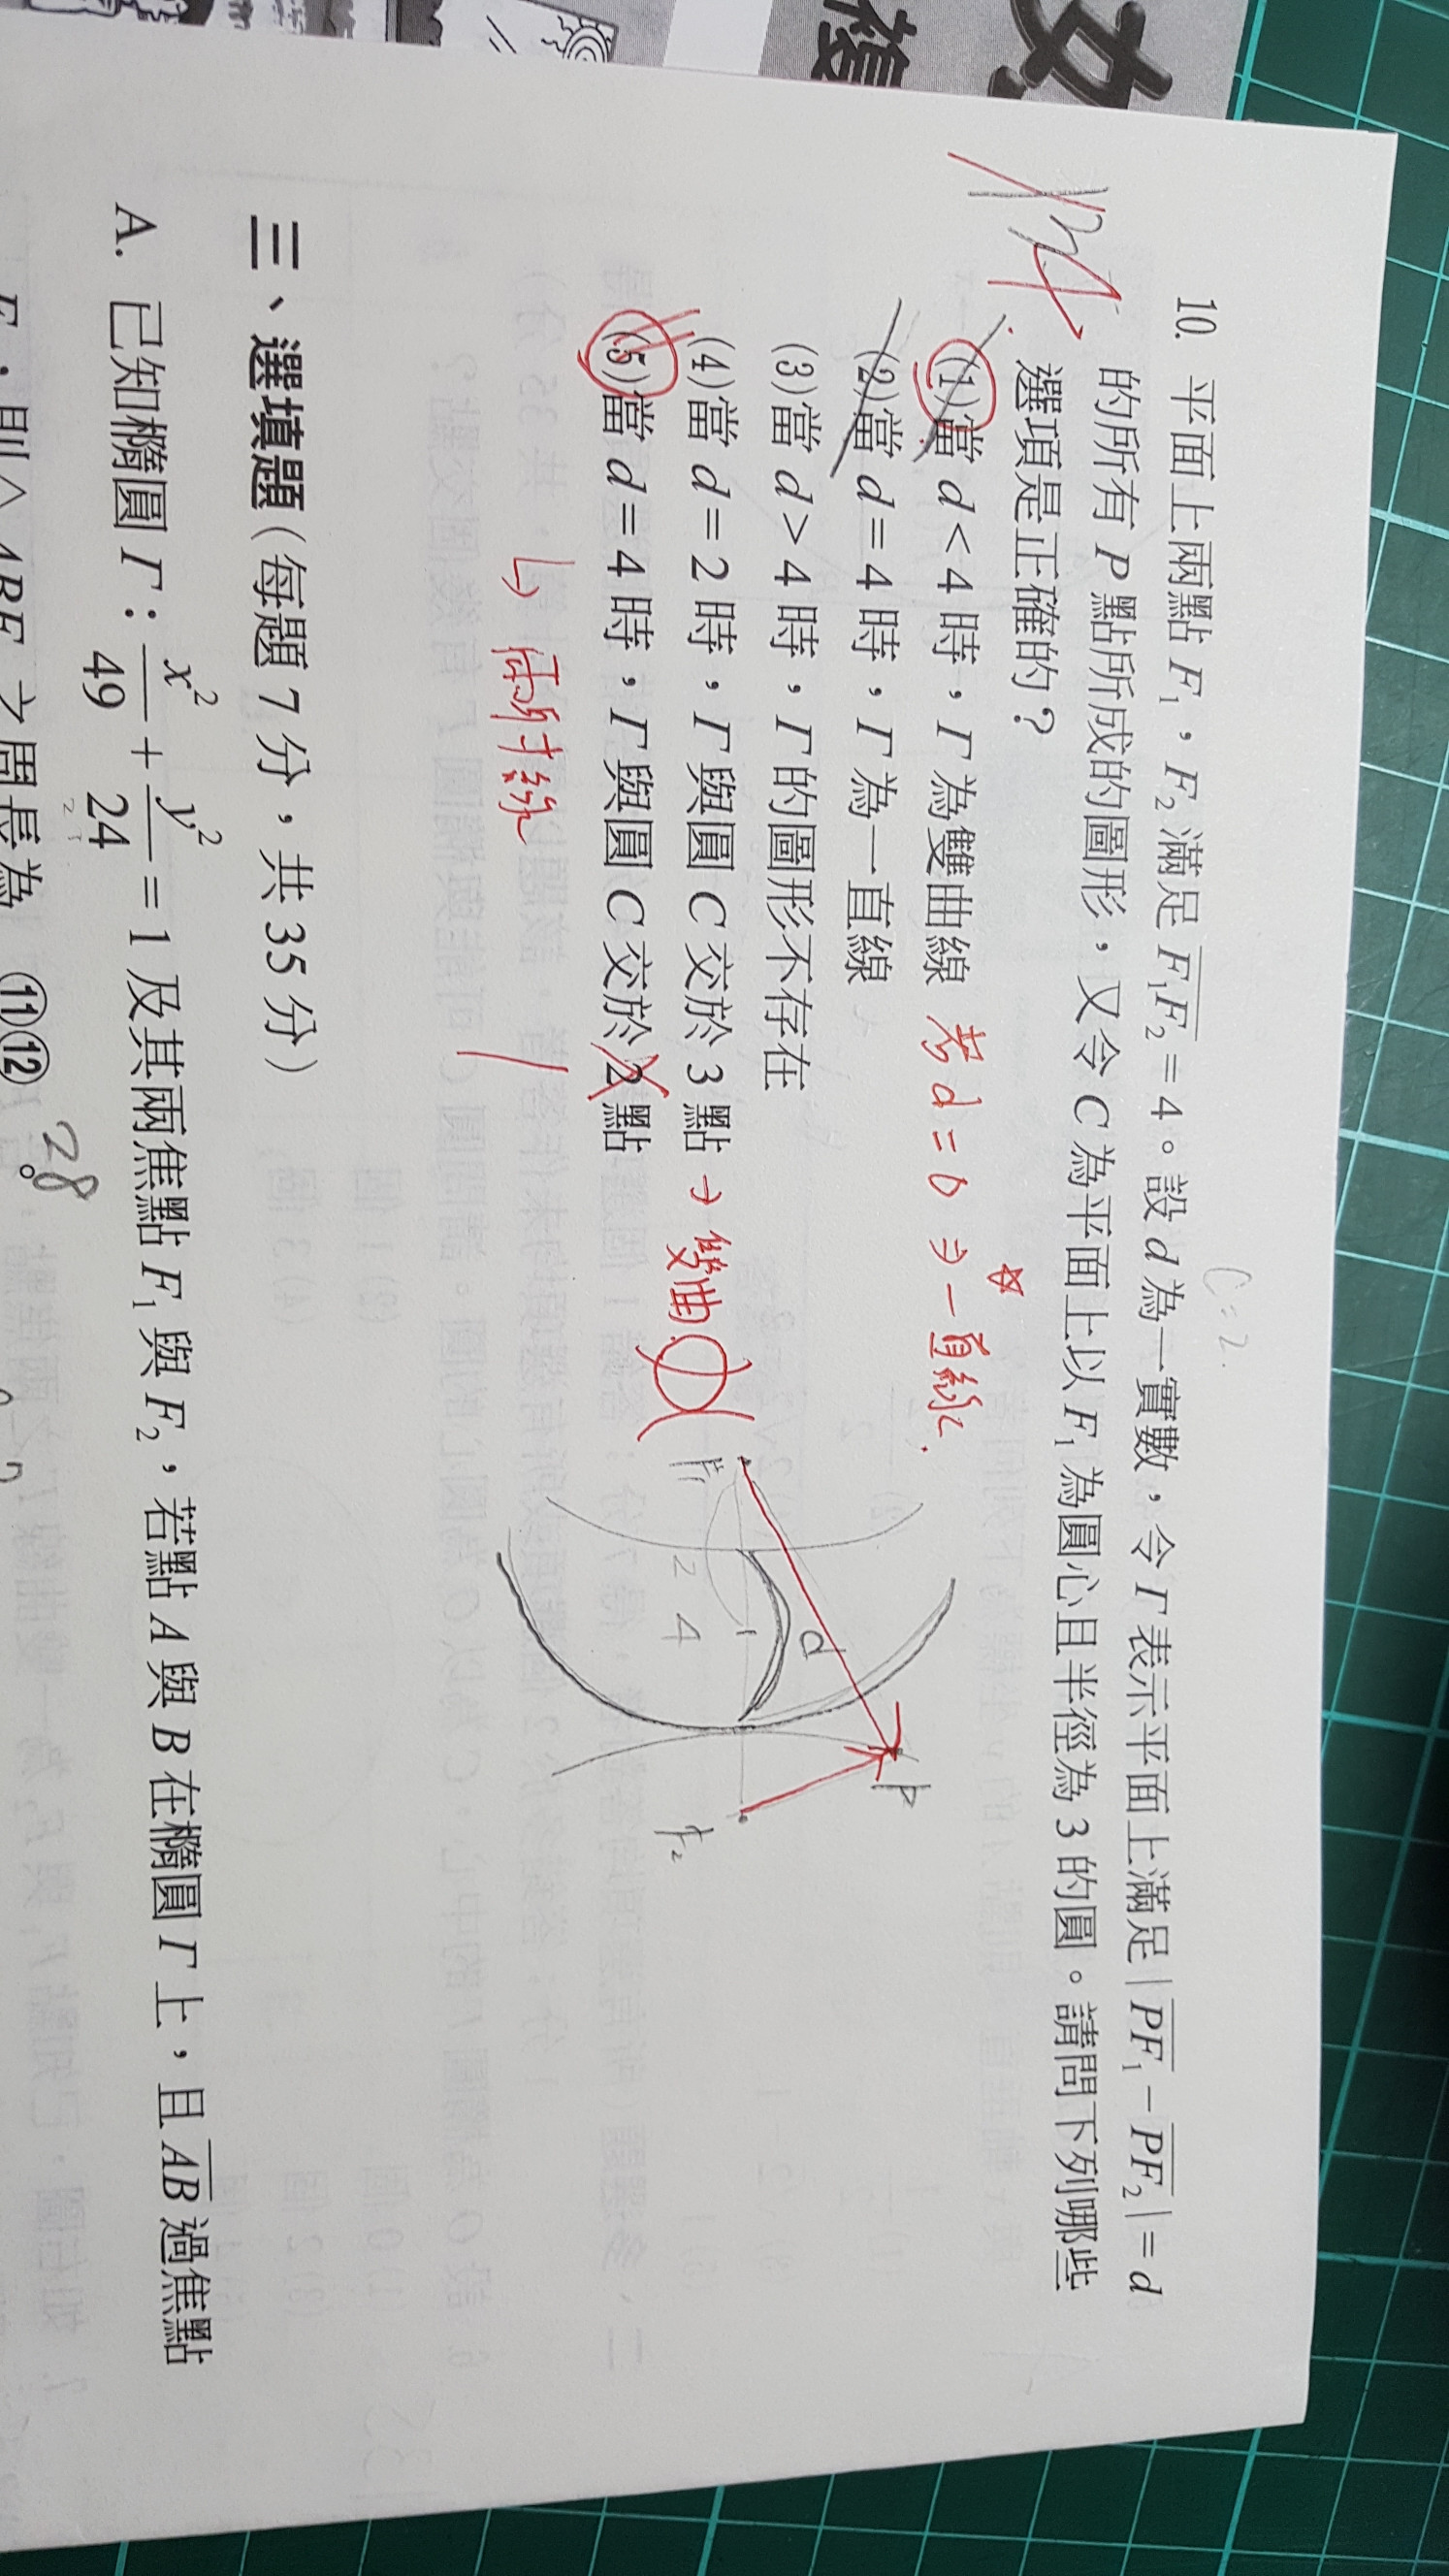 復
女
C=2.
10. 平面上兩點 F₁,F₂ 滿足 F₁F₂ = 4。設 d 為一實數,令 Γ 表示平面上滿足 | PF₁ − PF₂ | = d
的所有 P 點所成的圖形,又令 C 為平面上以 F₁ 為圓心且半徑為 3 的圓。請問下列哪些
選項是正確的?
(1)當 d < 4 時,Γ 為雙曲線 若 d = 0 ⇒ 一直線.
(2)當 d = 4 時,Γ 為一直線
(3)當 d > 4 時,Γ 的圖形不存在
(4)當 d = 2 時,Γ 與圓 C 交於 3 點 → 雙曲
(5)當 d = 4 時,Γ 與圓 C 交於 2 點
↳ 兩射線
1
F₁
2
4
1
d
P
F₂
三、選填題(每題 7 分,共 35 分)
A. 已知橢圓 Γ:x²/49 + y²/24 = 1 及其兩焦點 F₁ 與 F₂,若點 A 與 B 在橢圓 Γ 上,且 AB 過焦點
F₁,則△ABF₂ 之周長為 ⑪⑫ 。
28